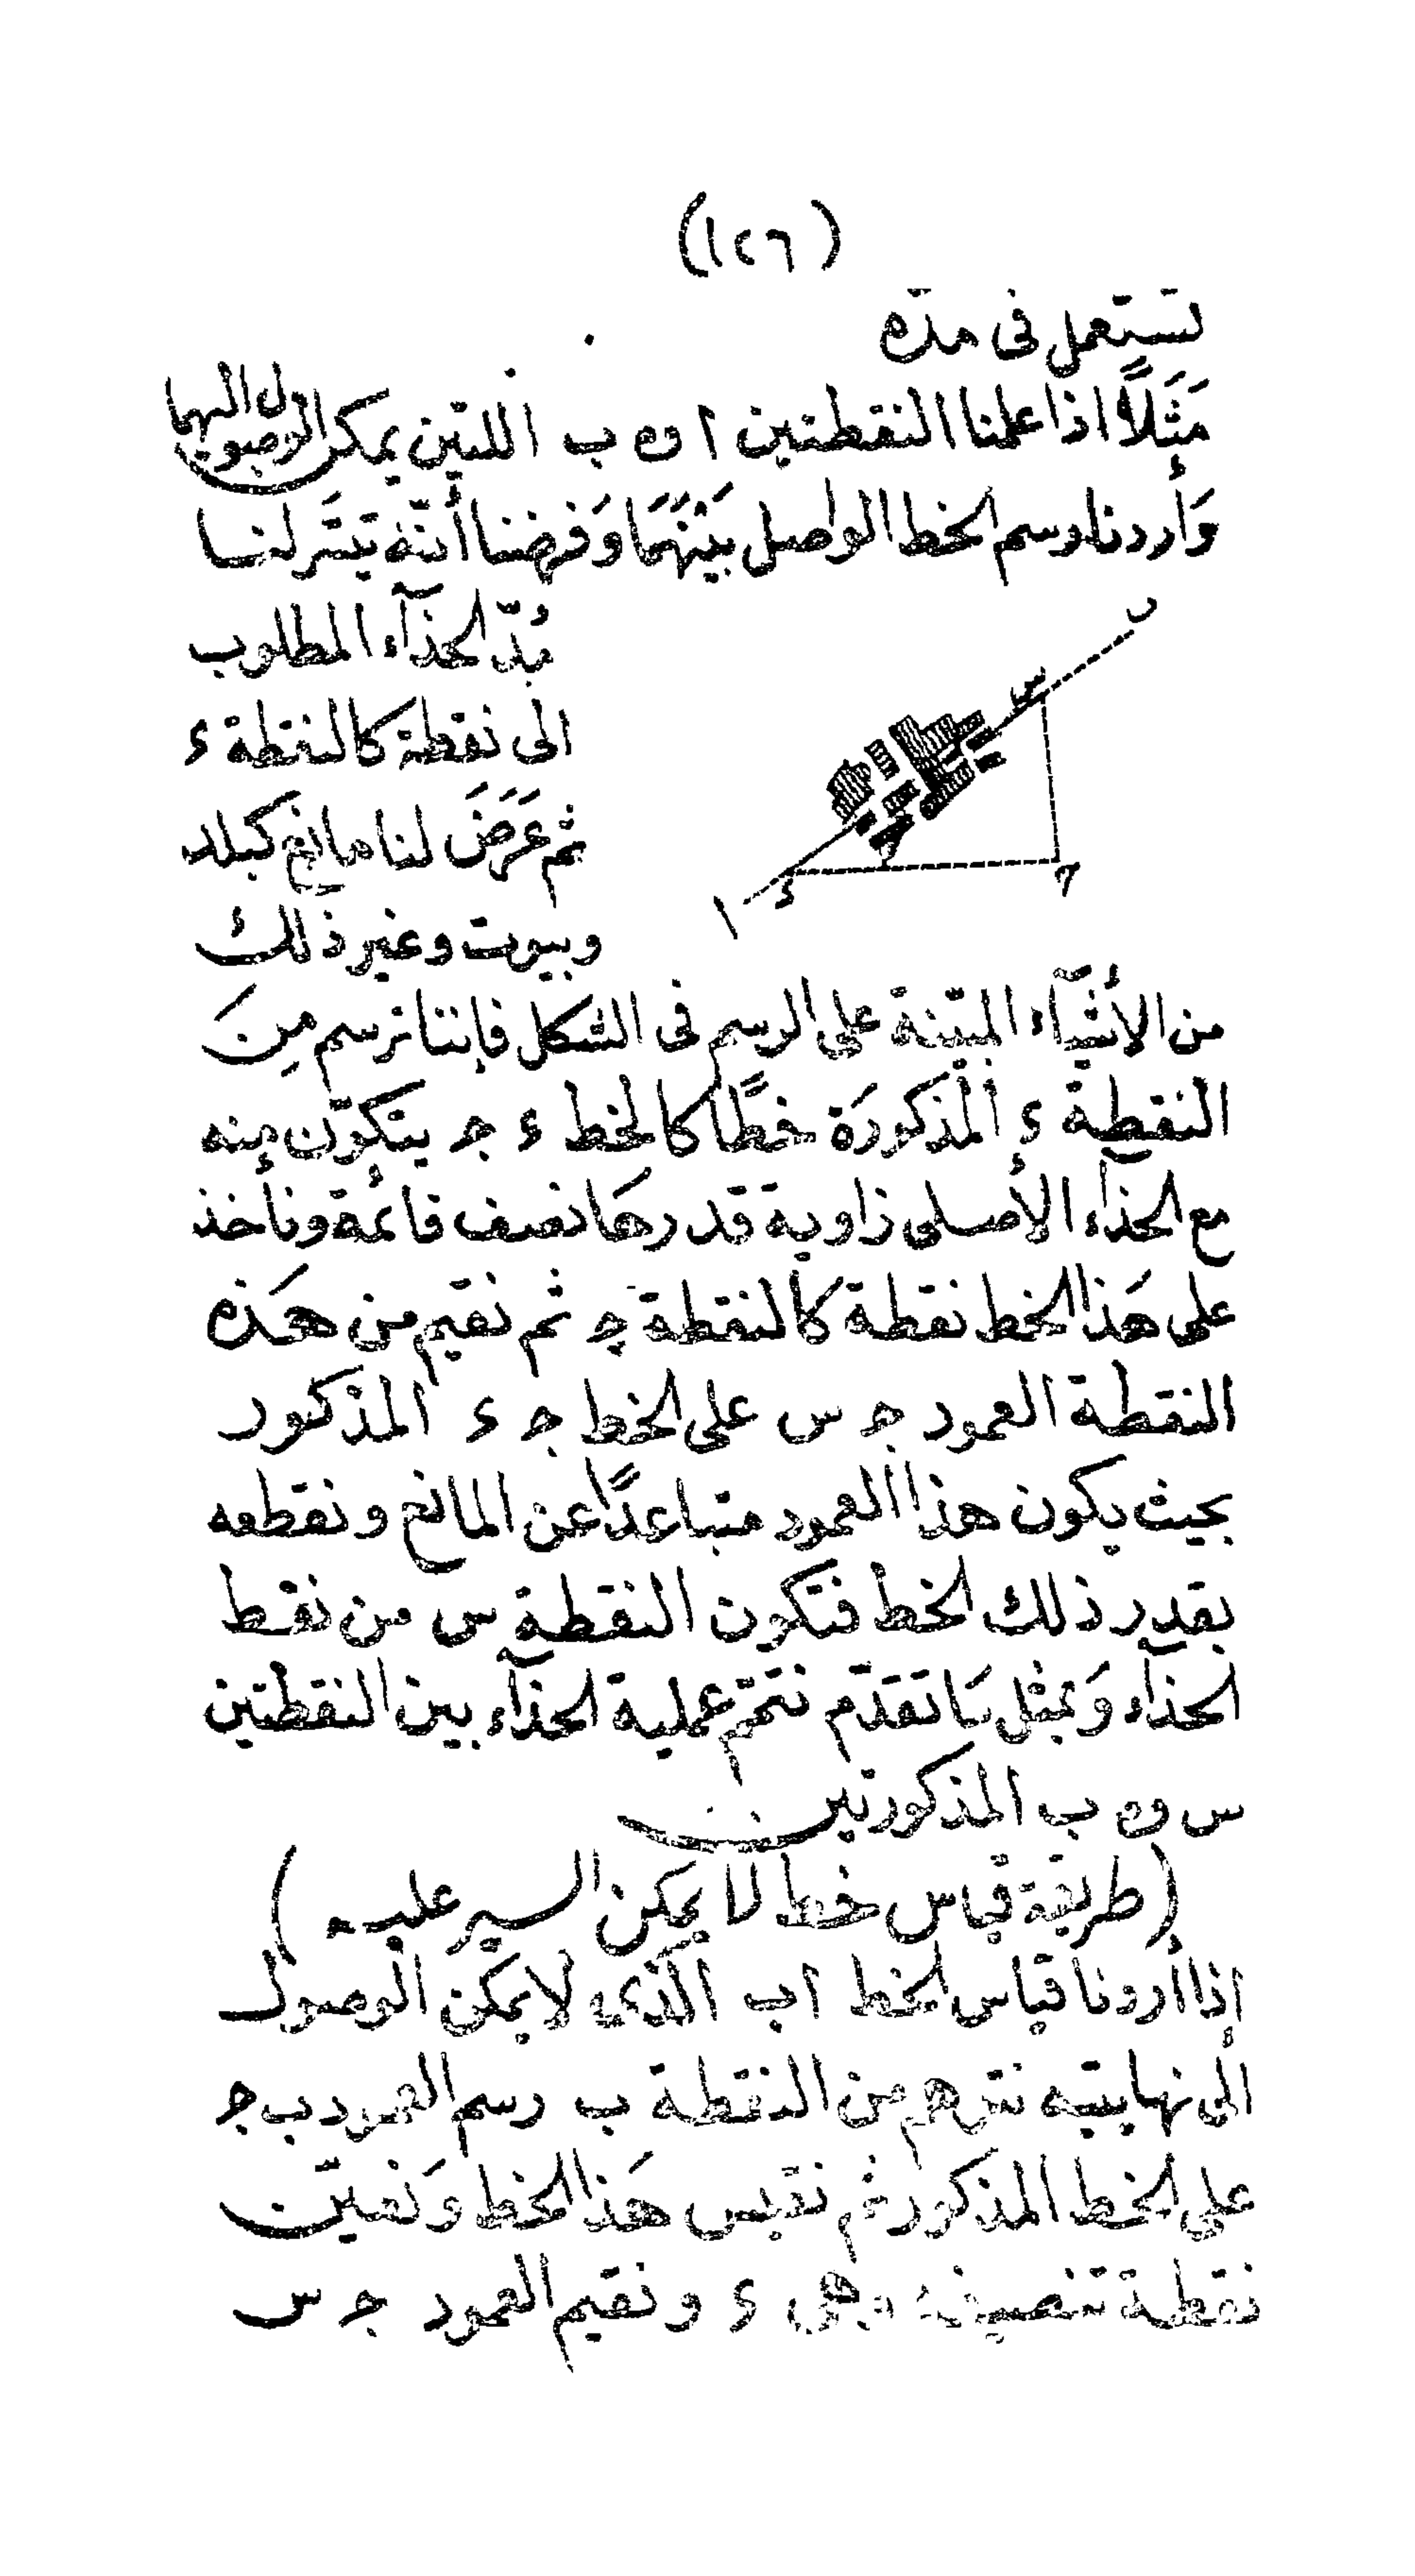 (١٢٦)
تستعمل فى مدّه
مَثَلًا اذا علمنا النقطتين ا و ب اللتين يمكن الوصول اليهما
وَأردنا رسم الخط الواصل بَيْنَهَمَا وَفرضنا أنّه تيَسَّر لنا
مُدّ الحذآء المطلوب
الى نقطة كالنقطة ء
ثم عَرَضَ لنا مانع كبلد
وبيوت وغير ذلك
ب
س
ح
ء
ا
من الأشيآء المبيّنة على الرسم فى الشكل فإننا نرسم مِنَ
النقطة ء المذكورَة خطًّا كالخط ء جـ يتكوّن منه
مع الحذآء الأصلى زاوية قدرهَا نصف قائمة ونأخذ
على هَذا الخط نقطة كالنقطة جـ ثم نقيم من هَذه
النقطة العمود جـ س على الخط جـ ء المذكور
بحيث يكون هذا العمود متباعدًا عن المانع ونقطعه
بقدر ذلك الخط فتكون النقطة س من نقط
الحذآء وَبمثل مَا تقدّم نتمّم عملية الحذآء بين النقطتين
س و ب المذكورتين
(طريقة قياس خط لا يمكن السير عليه)
إذا أردنا قياس الخط اب الذى لا يمكن الوصول
الى نهايتيه من النقطة ب رسم العمود ب جـ
على الخط المذكور ثم نقيس هَذا الخط وَنعين
نقطة تنصيفه وهى ء ونقيم العمود جـ س